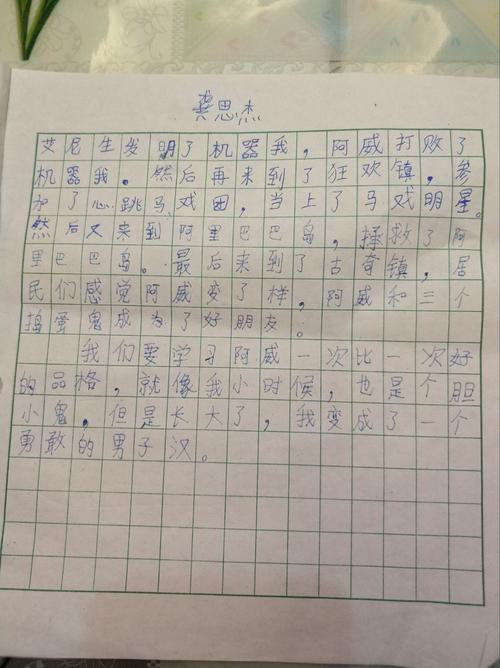 龚思杰
艾尼生发明了机器我，阿威打败了
机器我。然后再来到了狂欢镇，参
加了心跳马戏团，当上了马戏明星。
然后又来到阿里巴巴岛，拯救了阿
里巴巴岛。最后来到了古奇镇，居
民们感觉阿威变了样，阿威和三个
捣蛋鬼成为了好朋友。
我们要学习阿威一次比一次好
的品格，就像我小时候，也是个胆
小鬼，但是长大了，我变成了一个
勇敢的男子汉。